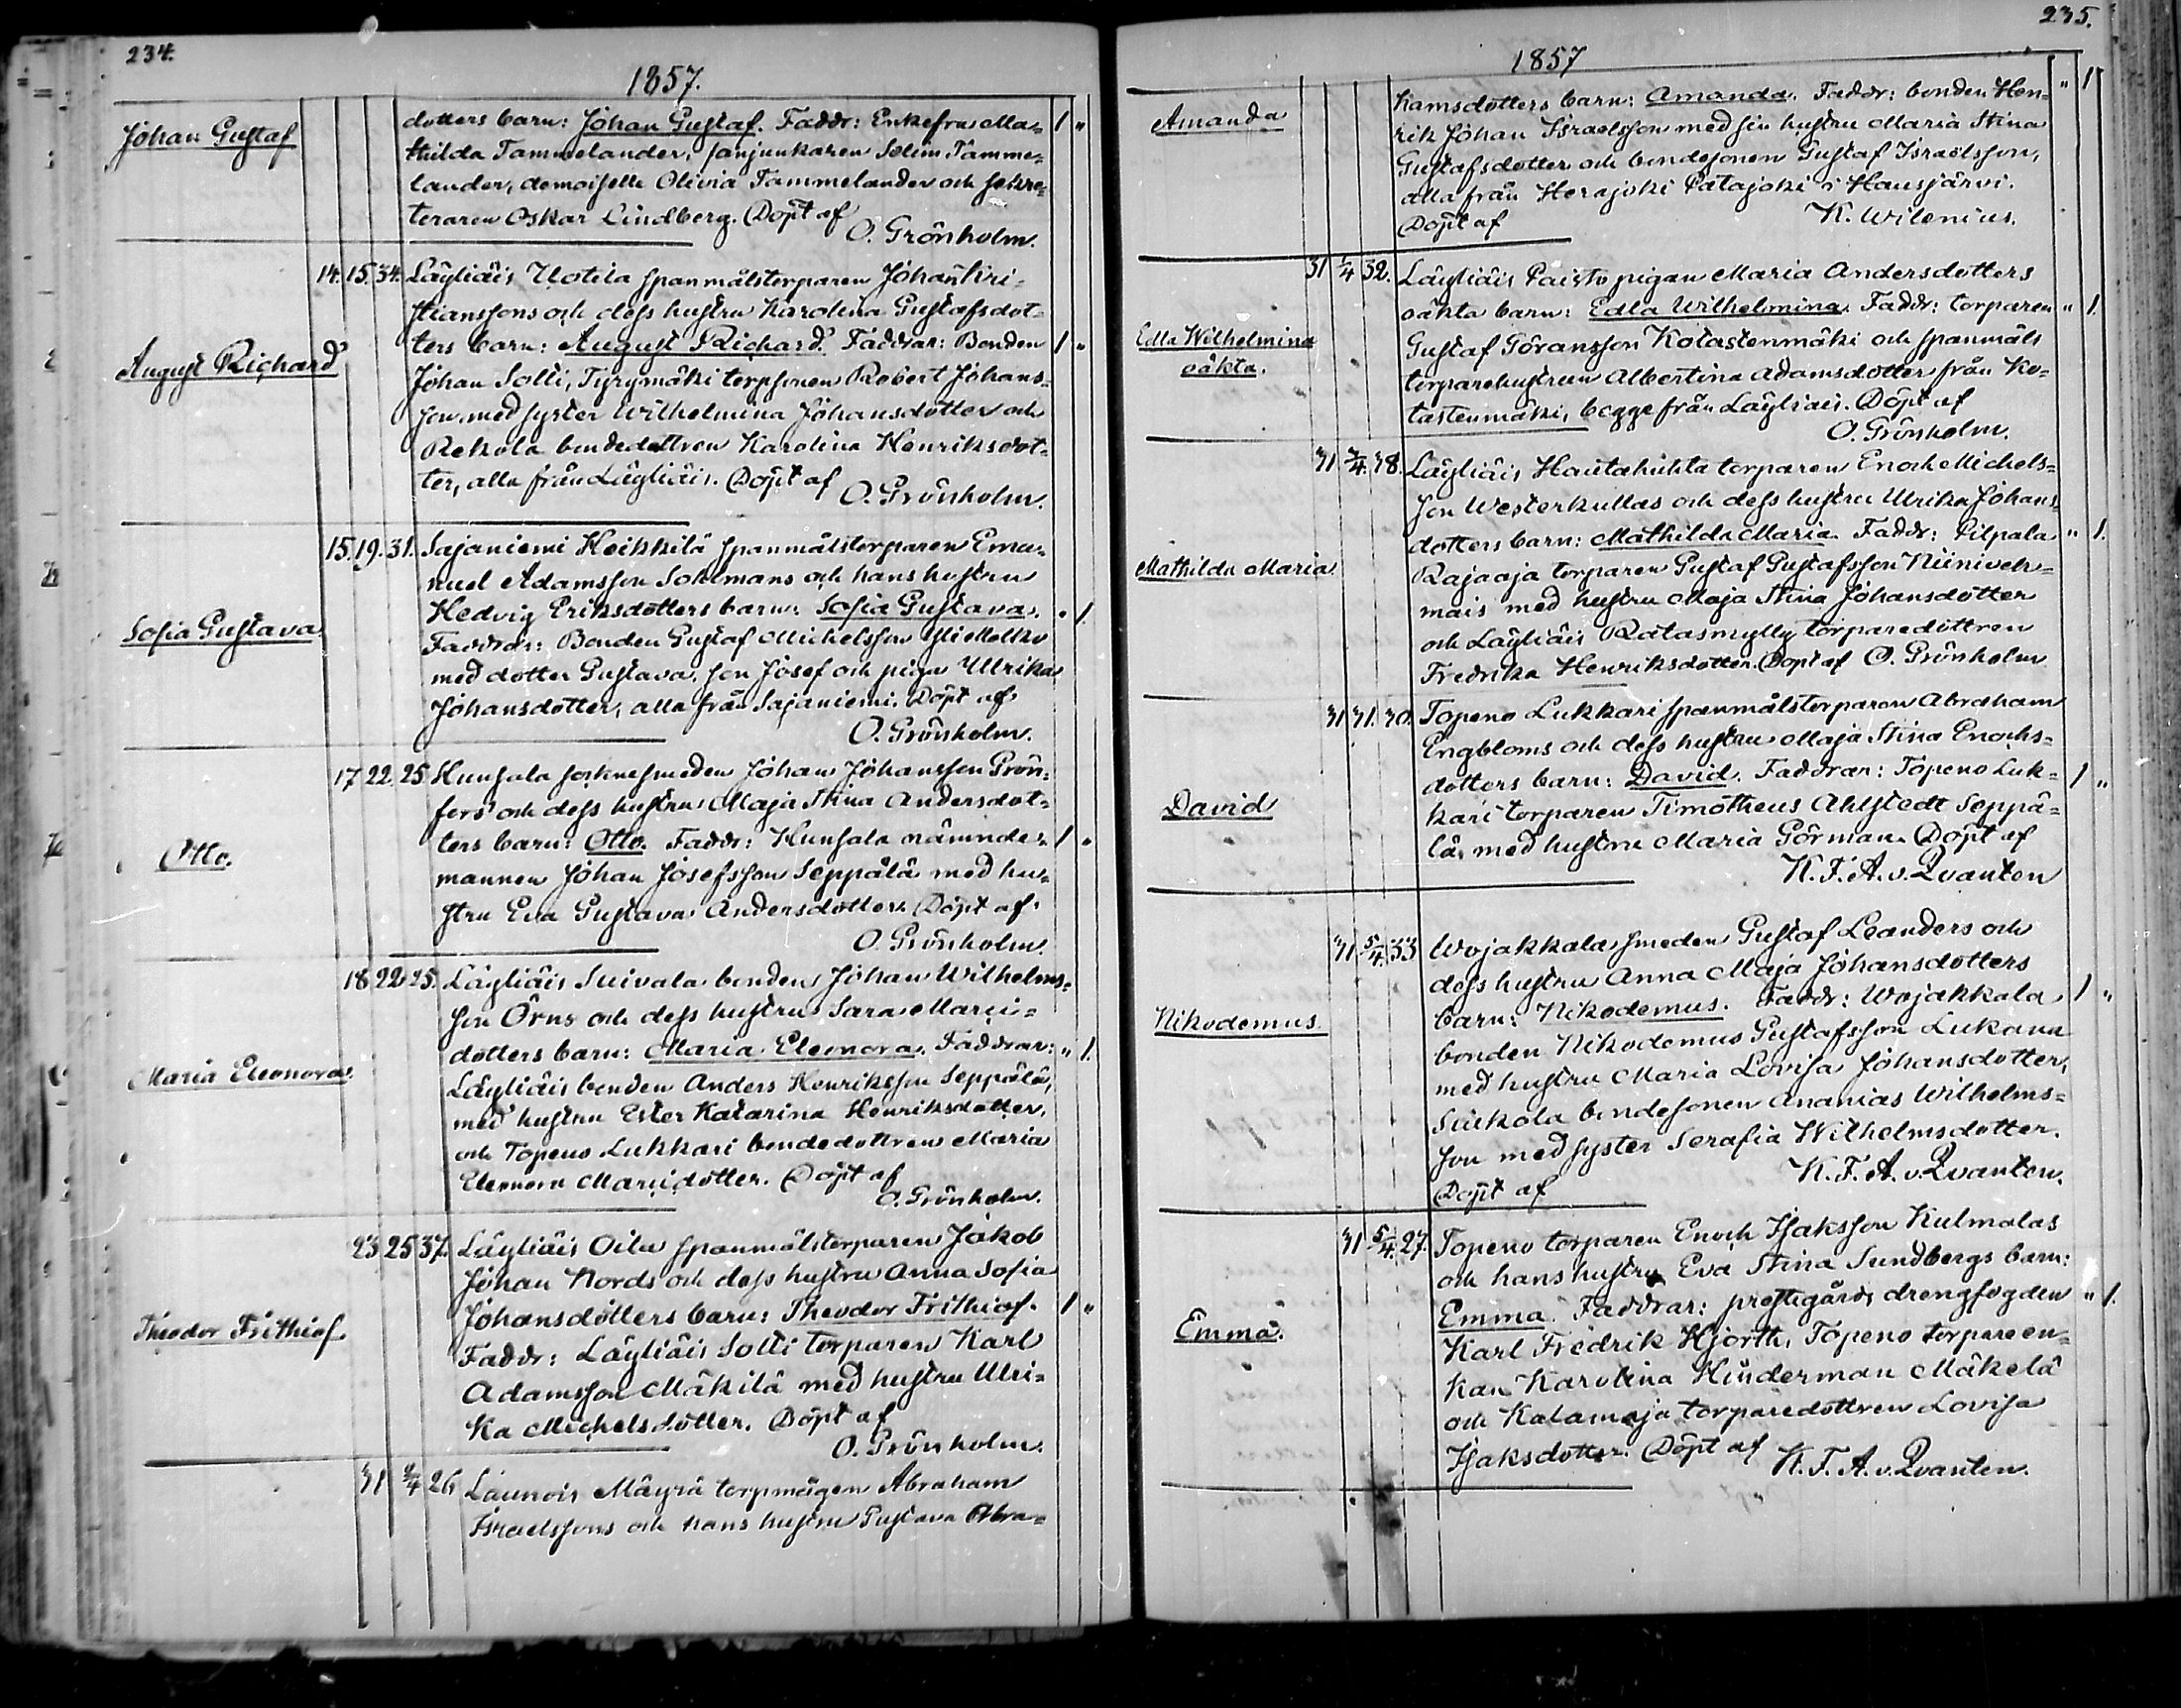 234.
1857.
Johan Gustaf
dotters barn: Johan Gustaf. Faddr: Enkefru Ma=
thilda Tammelander, fanjunkaren Selim Tamme=
lander, demoiselle Olivia Tammelander och sekre=
teraren Oskar Lindberg. Döpt af
O. Grönholm.
1 "
14. 15. 34. Läyliäis Uotila spanmålstorparen Johan Kri=
stianssons och dess hustru Karolina Gustafsdot=
ters barn: August Richard. Faddrar: Bonden 1 "
August Richard
Johan Solti, Tyrymäki torpsonen Robert Johans=
son med syster Wilhelmina Johansdotter och
Rekola bondedottren Karolina Henriksdot=
ter, alla från Läyliäis. Döpt af
O. Grönholm.
15. 19. 31. Sajaniemi Heikkilä spanmålstorparen Ema=
nuel Adamsson Sohlmans och hans hustru
Hedvig Eriksdotters barn: Sofia Gustava. " 1
Sofia Gustava
Faddrar: Bonden Gustaf Michelsson
med dotter Gustava, son Josef och pigan Ulrika
Johansdotter, alla från Sajaniemi. Döpt af
O. Grönholm.
17 22. 25 Hunsala socknesmeden Johan Johansson Grön=
fors och dess hustru Maja Stina Andersdot=
ters barn: Otto. Faddr: Hunsala nämnde= 1 "
Otto.
mannen Johan Josefsson Seppälä med hu=
stru Eva Gustava Andersdotter. Döpt af
O. Grönholm.
18 22 25. Läyliäis Suivala bonden Johan Wilhelms=
son Örns och dess hustru Sara Marci=
dotters barn: Maria Eleonora. Faddrar: " 1.
Maria Eleonora.
Läyliäis bonden Anders Henriksson Seppälä,
med hustru Ester Katarina Henriksdotter,
och Topeno Lukkari bondedottren Maria
Eleonora Marcidotter. Döpt af
O. Grönholm.
23 25 37. Läyliäis Oila spanmålstorparen Jakob
Johan Nords och dess hustru Anna Sofia
Johansdotters barn: Theodor Frithiof. 1 "
Theodor Frithiof.
Faddr: Läyliäis Solti torparen Karl
Adamsson Mäkilä med hustru Ulri=
ka Michelsdotter. Döpt af
O. Grönholm.
31 2/4 26 Launois Mäyrä torpmågen Abraham
Israelssons och hans hustru Gustava Abra=
235.
1857
Amanda
hamsdotters barn: Amanda. Faddr: bonden Hen= " 1
rik Johan Israelsson med sin hustru Maria Stina
Gustafsdotter och bondesonen Gustaf Israelsson,
alla från Herajoki Patajoki i Hausjärvi.
Döpt af K. Wilenius.
31 1/4 32. Läyliäis Paisto pigan Maria Andersdotters
oäkta barn: Edla Wilhelmina. Faddr: torparen " 1.
Edla Wilhelmina
oäkta.
Gustaf Göransson Kotastenmäki och spanmåls
torparehustrun Albertina Adamsdotter från Ko=
tastenmäki, begge från Läyliäis. Döpt af
O. Grönholm.
31 2/4. 38. Läyliäis Hautahuhta torparen Enoch Michels=
son Westerkullas och dess hustru Ulrika Johans
dotters barn: Mathilda Maria. Faddr: Pilpala " 1.
Mathilda Maria
Rajaaja torparen Gustaf Gustafsson Niiniveh=
mais med hustru Maja Stina Johansdotter
och Läyliäis Ratasmylly torparedottren
Fredrika Henriksdotter. Döpt af O. Grönholm
31 31. 30. Topeno Lukkari spanmålstorparen Abraham
Engbloms och dess hustru Maja Stina Enochs=
dotters barn: David. Faddrar: Topeno Luk= 1 "
David
kari torparen Timotheus Ahlstedt Seppä=
lä, med hustru Maria Görman. Döpt af
K. F. A. v. Qvanten
31 5/4. 33 Wojakkala smeden Gustaf Leanders och
dess hustru Anna Maja Johansdotters
barn: Nikodemus. Faddr: Wojakkala 1 "
Nikodemus
bonden Nikodemus Gustafsson Lukana
med hustru Maria Lovisa Johansdotter,
Siukola bondesonen Ananias Wilhelms=
son med syster Serafia Wilhelmsdotter.
Döpt af K. F. A. v. Qvanten.
31 5/4. 27. Topeno torparen Enoch Isaksson Kulmalas
och hans hustru Eva Stina Sundbergs barn:
Emma. Faddrar: prestegårds drengfogden " 1.
Emma.
Karl Fredrik Hjorth, Topeno torpareen=
kan Karolina Hinderman Mäkelä
och Kalamaja torparedottren Lovisa
Isaksdotter. Döpt af K. F. A. v. Qvanten.